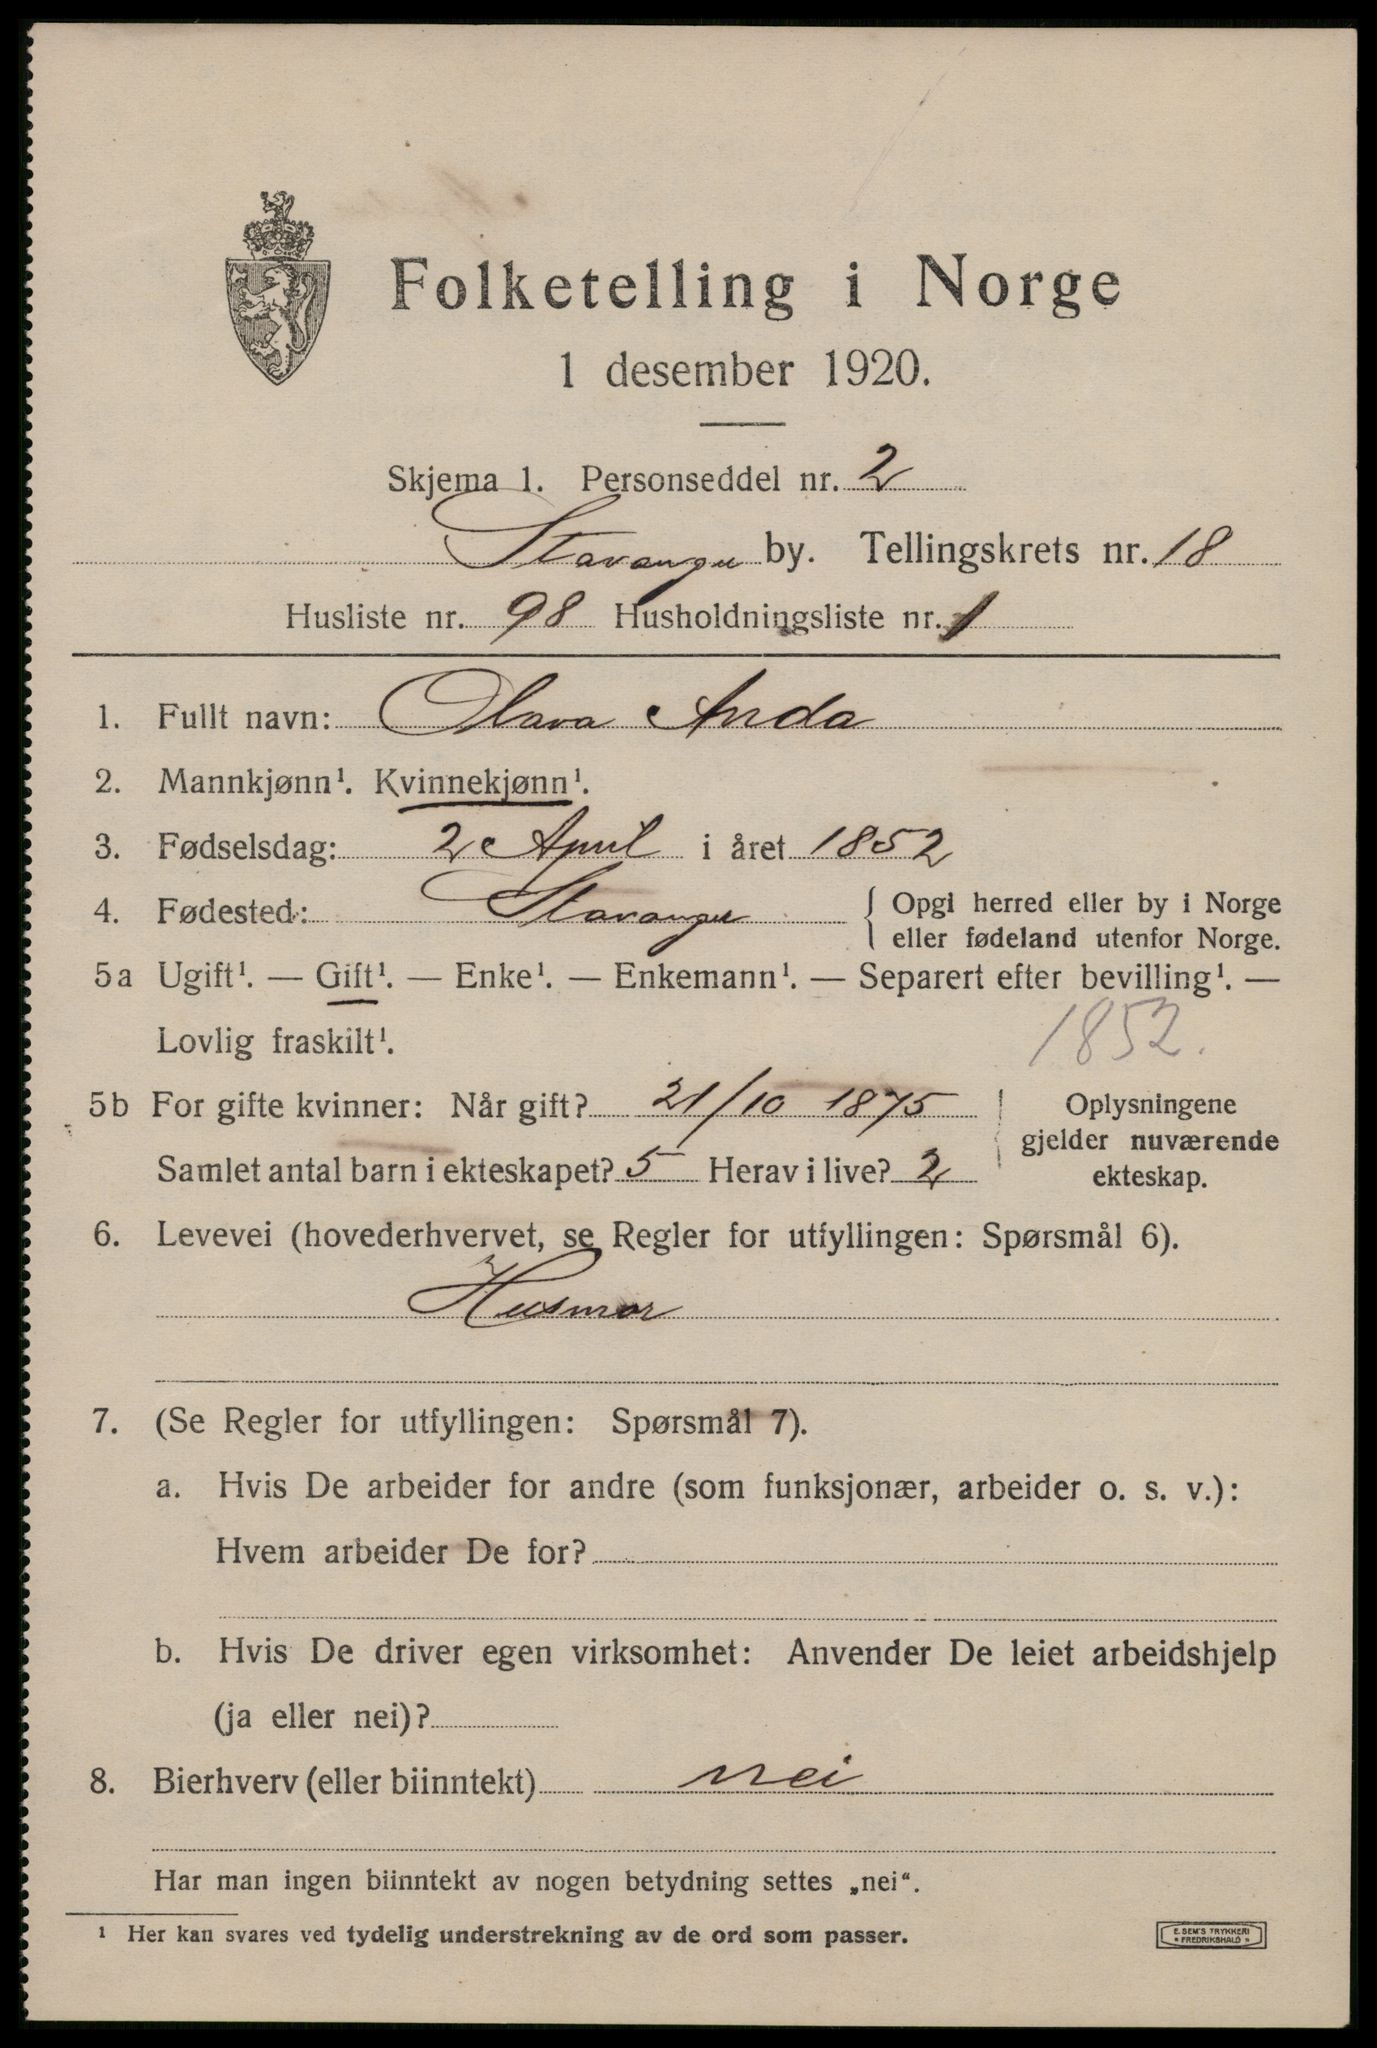 Folketelling i Norge
1 desember 1920.
Skjema 1. Personseddel nr. 2
Stavanger by. Tellingskrets nr. 18
Husliste nr. 98 Husholdningsliste nr. 1
1. Fullt navn: Olava Anda
2. Mannkjønn¹. Kvinnekjønn¹.
3. Fødselsdag: 2 April i året 1852
4. Fødested: Stavanger { Opgi herred eller by i Norge
eller fødeland utenfor Norge.
5a Ugift¹. — Gift¹. — Enke¹. — Enkemann¹. — Separert efter bevilling¹. —
Lovlig fraskilt¹. 1852.
5b For gifte kvinner: Når gift? 21/10 1875 Oplysningene
gjelder nuværende
Samlet antal barn i ekteskapet? 5 Herav i live? 2 ekteskap.
6. Levevei (hovederhvervet, se Regler for utfyllingen: Spørsmål 6).
Husmor
7. (Se Regler for utfyllingen: Spørsmål 7).
a. Hvis De arbeider for andre (som funksjonær, arbeider o. s. v.):
Hvem arbeider De for?
b. Hvis De driver egen virksomhet: Anvender De leiet arbeidshjelp
(ja eller nei)?
8. Bierhverv (eller biinntekt) nei
Har man ingen biinntekt av nogen betydning settes „nei“.
¹ Her kan svares ved tydelig understrekning av de ord som passer.
E. SEM'S TRYKKERI
FREDRIKSHALD